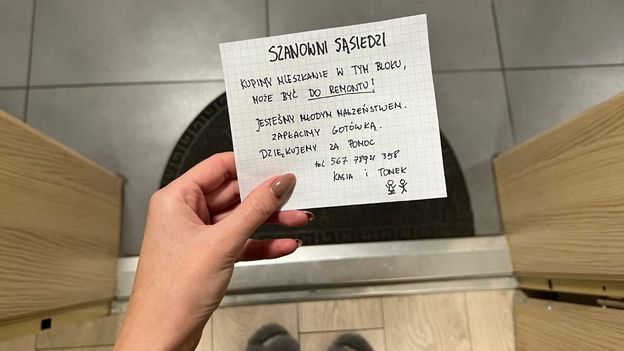 SZANOWNI SĄSIEDZI
KUPIMY MIESZKANIE W TYM BLOKU,
MOŻE BYĆ DO REMONTU!
JESTEŚMY MŁODYM MAŁŻEŃSTWEM.
ZAPŁACIMY GOTÓWKĄ.
DZIĘKUJEMY ZA POMOC
tel 567 78921 358
KASIA i TOMEK